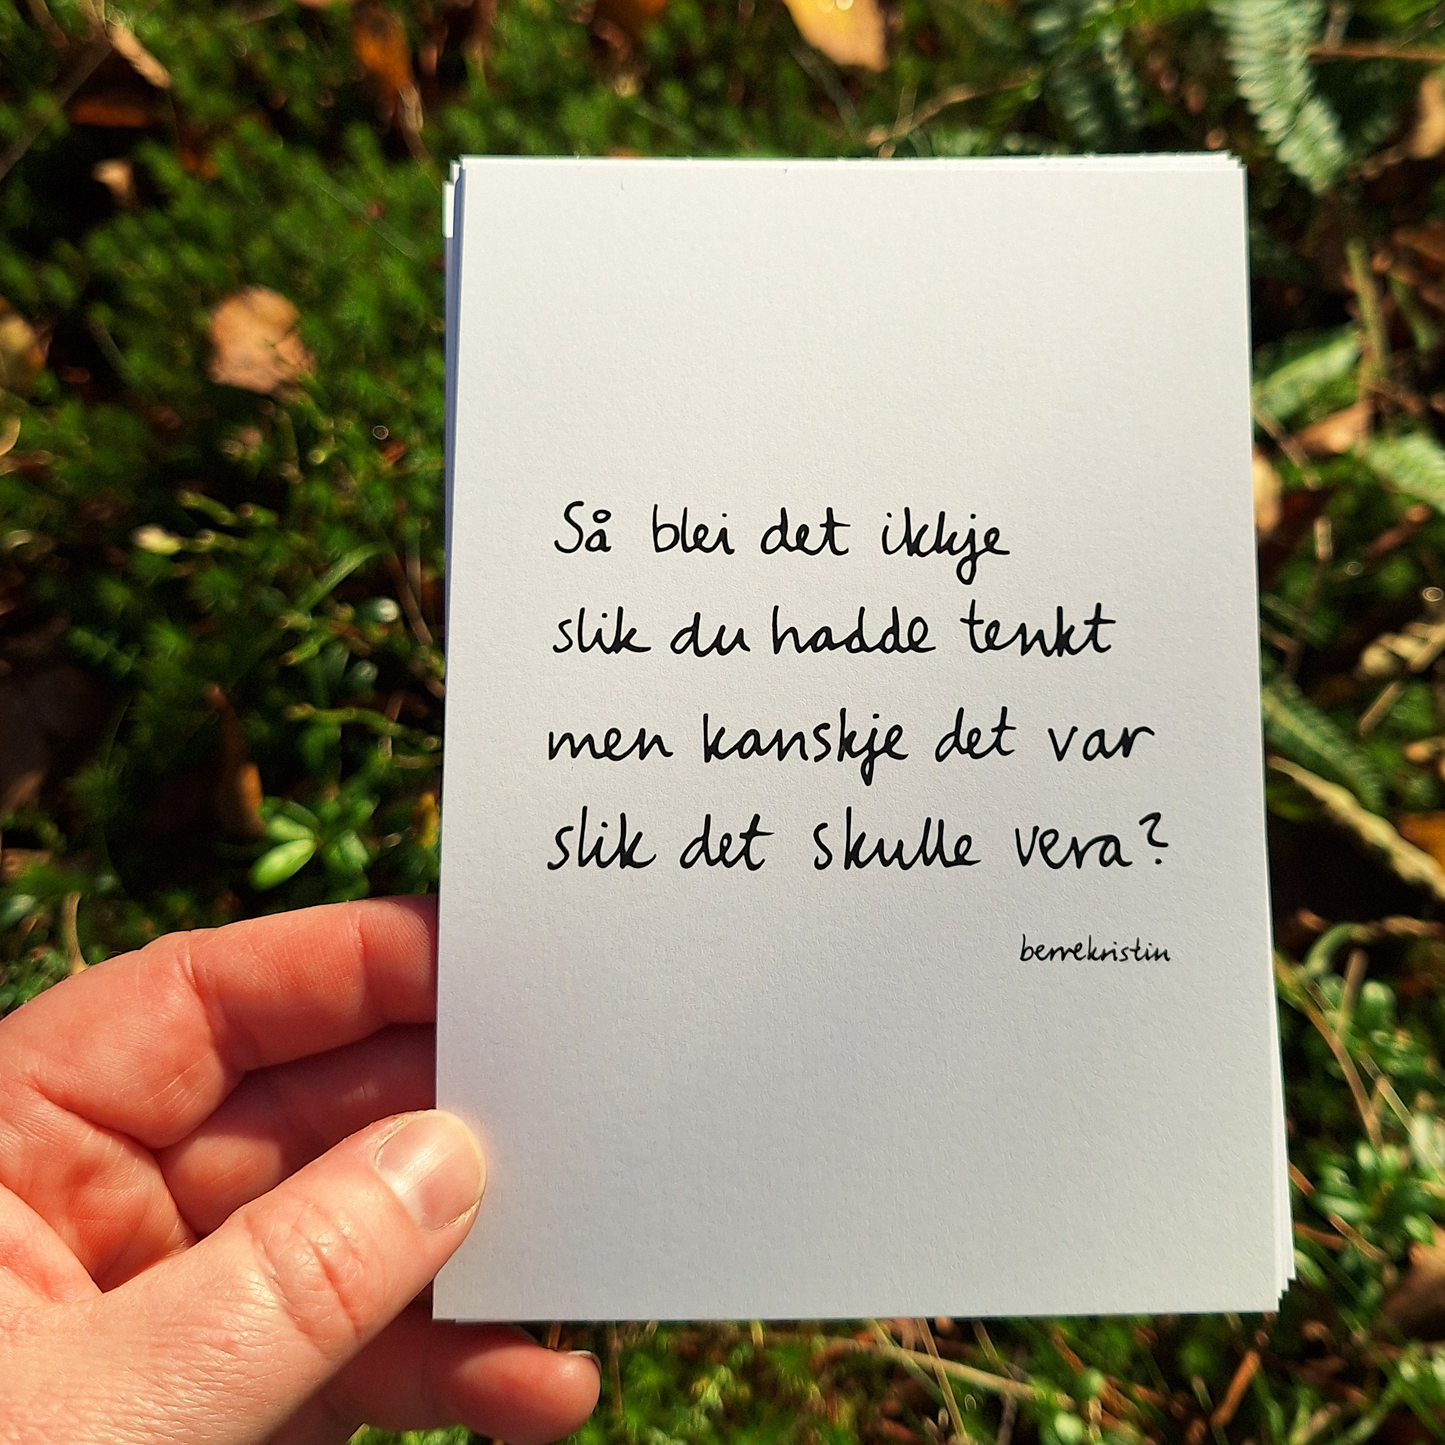 Så blei det ikkje
slik du hadde tenkt
men kanskje det var
slik det skulle vera?
berrekristin